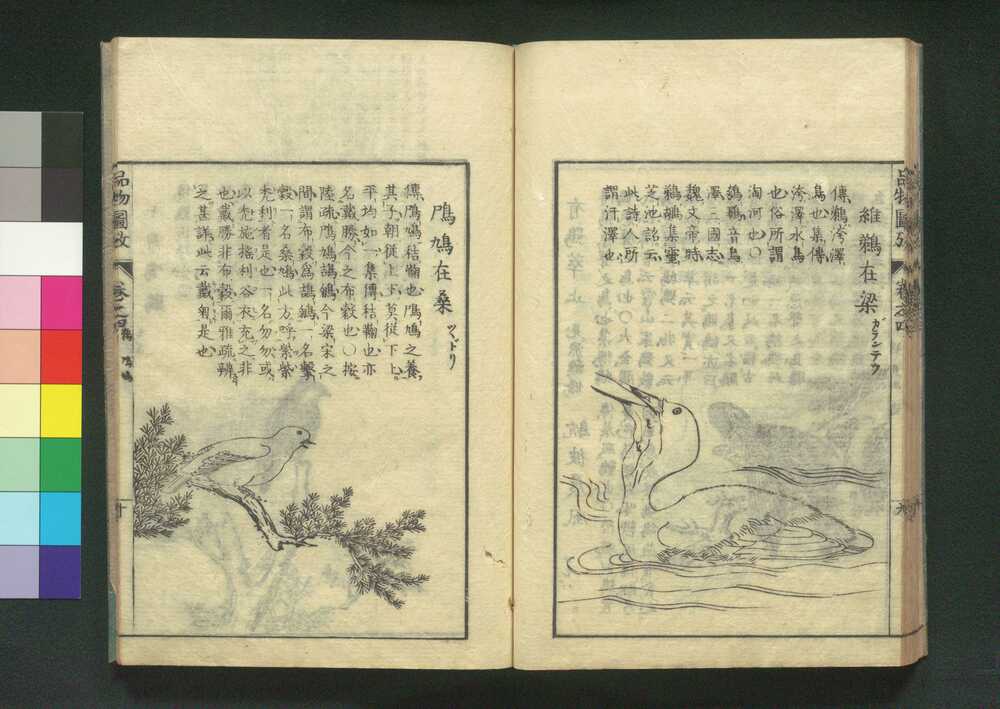 維鵜在梁 ガランテウ
傳鵜洿澤
鳥也集傳
洿澤水鳥
也俗所謂
淘河也〇
三國志
魏文帝時
鵜鶘集靈
芝池詔云
此詩人所
謂汙澤也
品物圖攷 卷之四 九
鳲鳩在桑 ツヽドリ
傳鳲鳩秸鞠也鳲鳩之養
其子朝從上下莫從下上
平均如一集傳秸鞠也亦
名戴勝今之布穀也〇按
陸疏鳲鳩鴶鵴今梁宋之
間謂布穀爲鴶鵴一名擊
穀一名桑鳩此方呼紫紫
禿利者是也一名勿勿或
以禿施搖利谷衣充之非
也戴勝非布穀爾雅疏辨
之甚詳此云戴是也
品物圖攷 卷之四 十